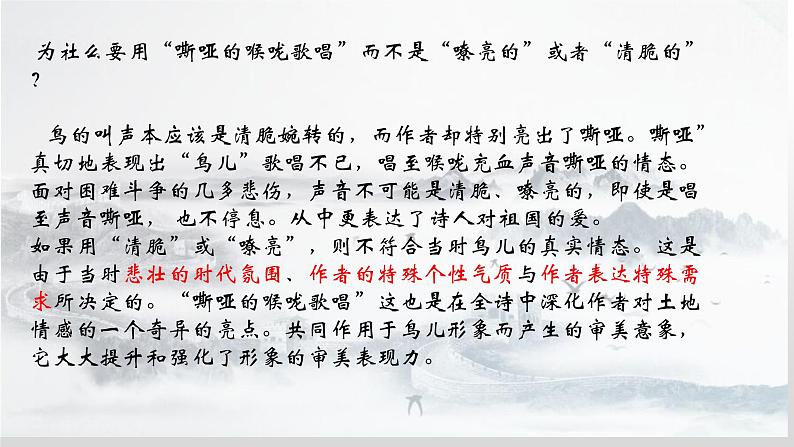 为社么要用“嘶哑的喉咙歌唱”而不是“嘹亮的”或者“清脆的”
？
鸟的叫声本应该是清脆婉转的，而作者却特别亮出了嘶哑。嘶哑”
真切地表现出“鸟儿”歌唱不已，唱至喉咙充血声音嘶哑的情态。
面对困难斗争的几多悲伤，声音不可能是清脆、嘹亮的，即使是唱
至声音嘶哑， 也不停息。从中更表达了诗人对祖国的爱。
如果用“清脆”或“嘹亮”，则不符合当时鸟儿的真实情态。这是
由于当时悲壮的时代氛围、作者的特殊个性气质与作者表达特殊需
求所决定的。“嘶哑的喉咙歌唱”这也是在全诗中深化作者对土地
情感的一个奇异的亮点。共同作用于鸟儿形象而产生的审美意象，
它大大提升和强化了形象的审美表现力。